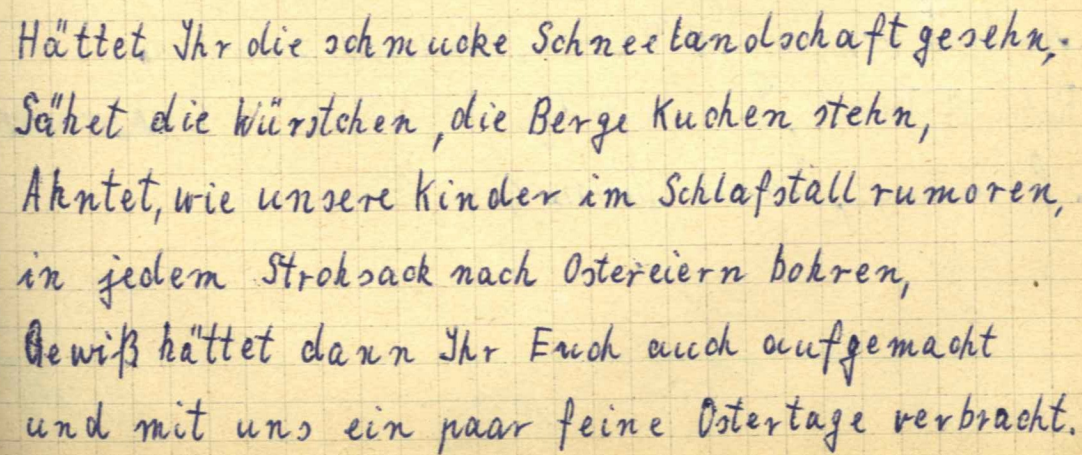 Hättet Ihr die schmucke Schneelandschaft gesehn,
Sähet die Würstchen, die Berge Kuchen stehn,
Ahntet, wie unsere Kinder im Schlafstall rumoren,
in jedem Strohsack nach Ostereiern bohren,
Gewiß hättet dann Ihr Euch auch aufgemacht
und mit uns ein paar feine Ostertage verbracht.